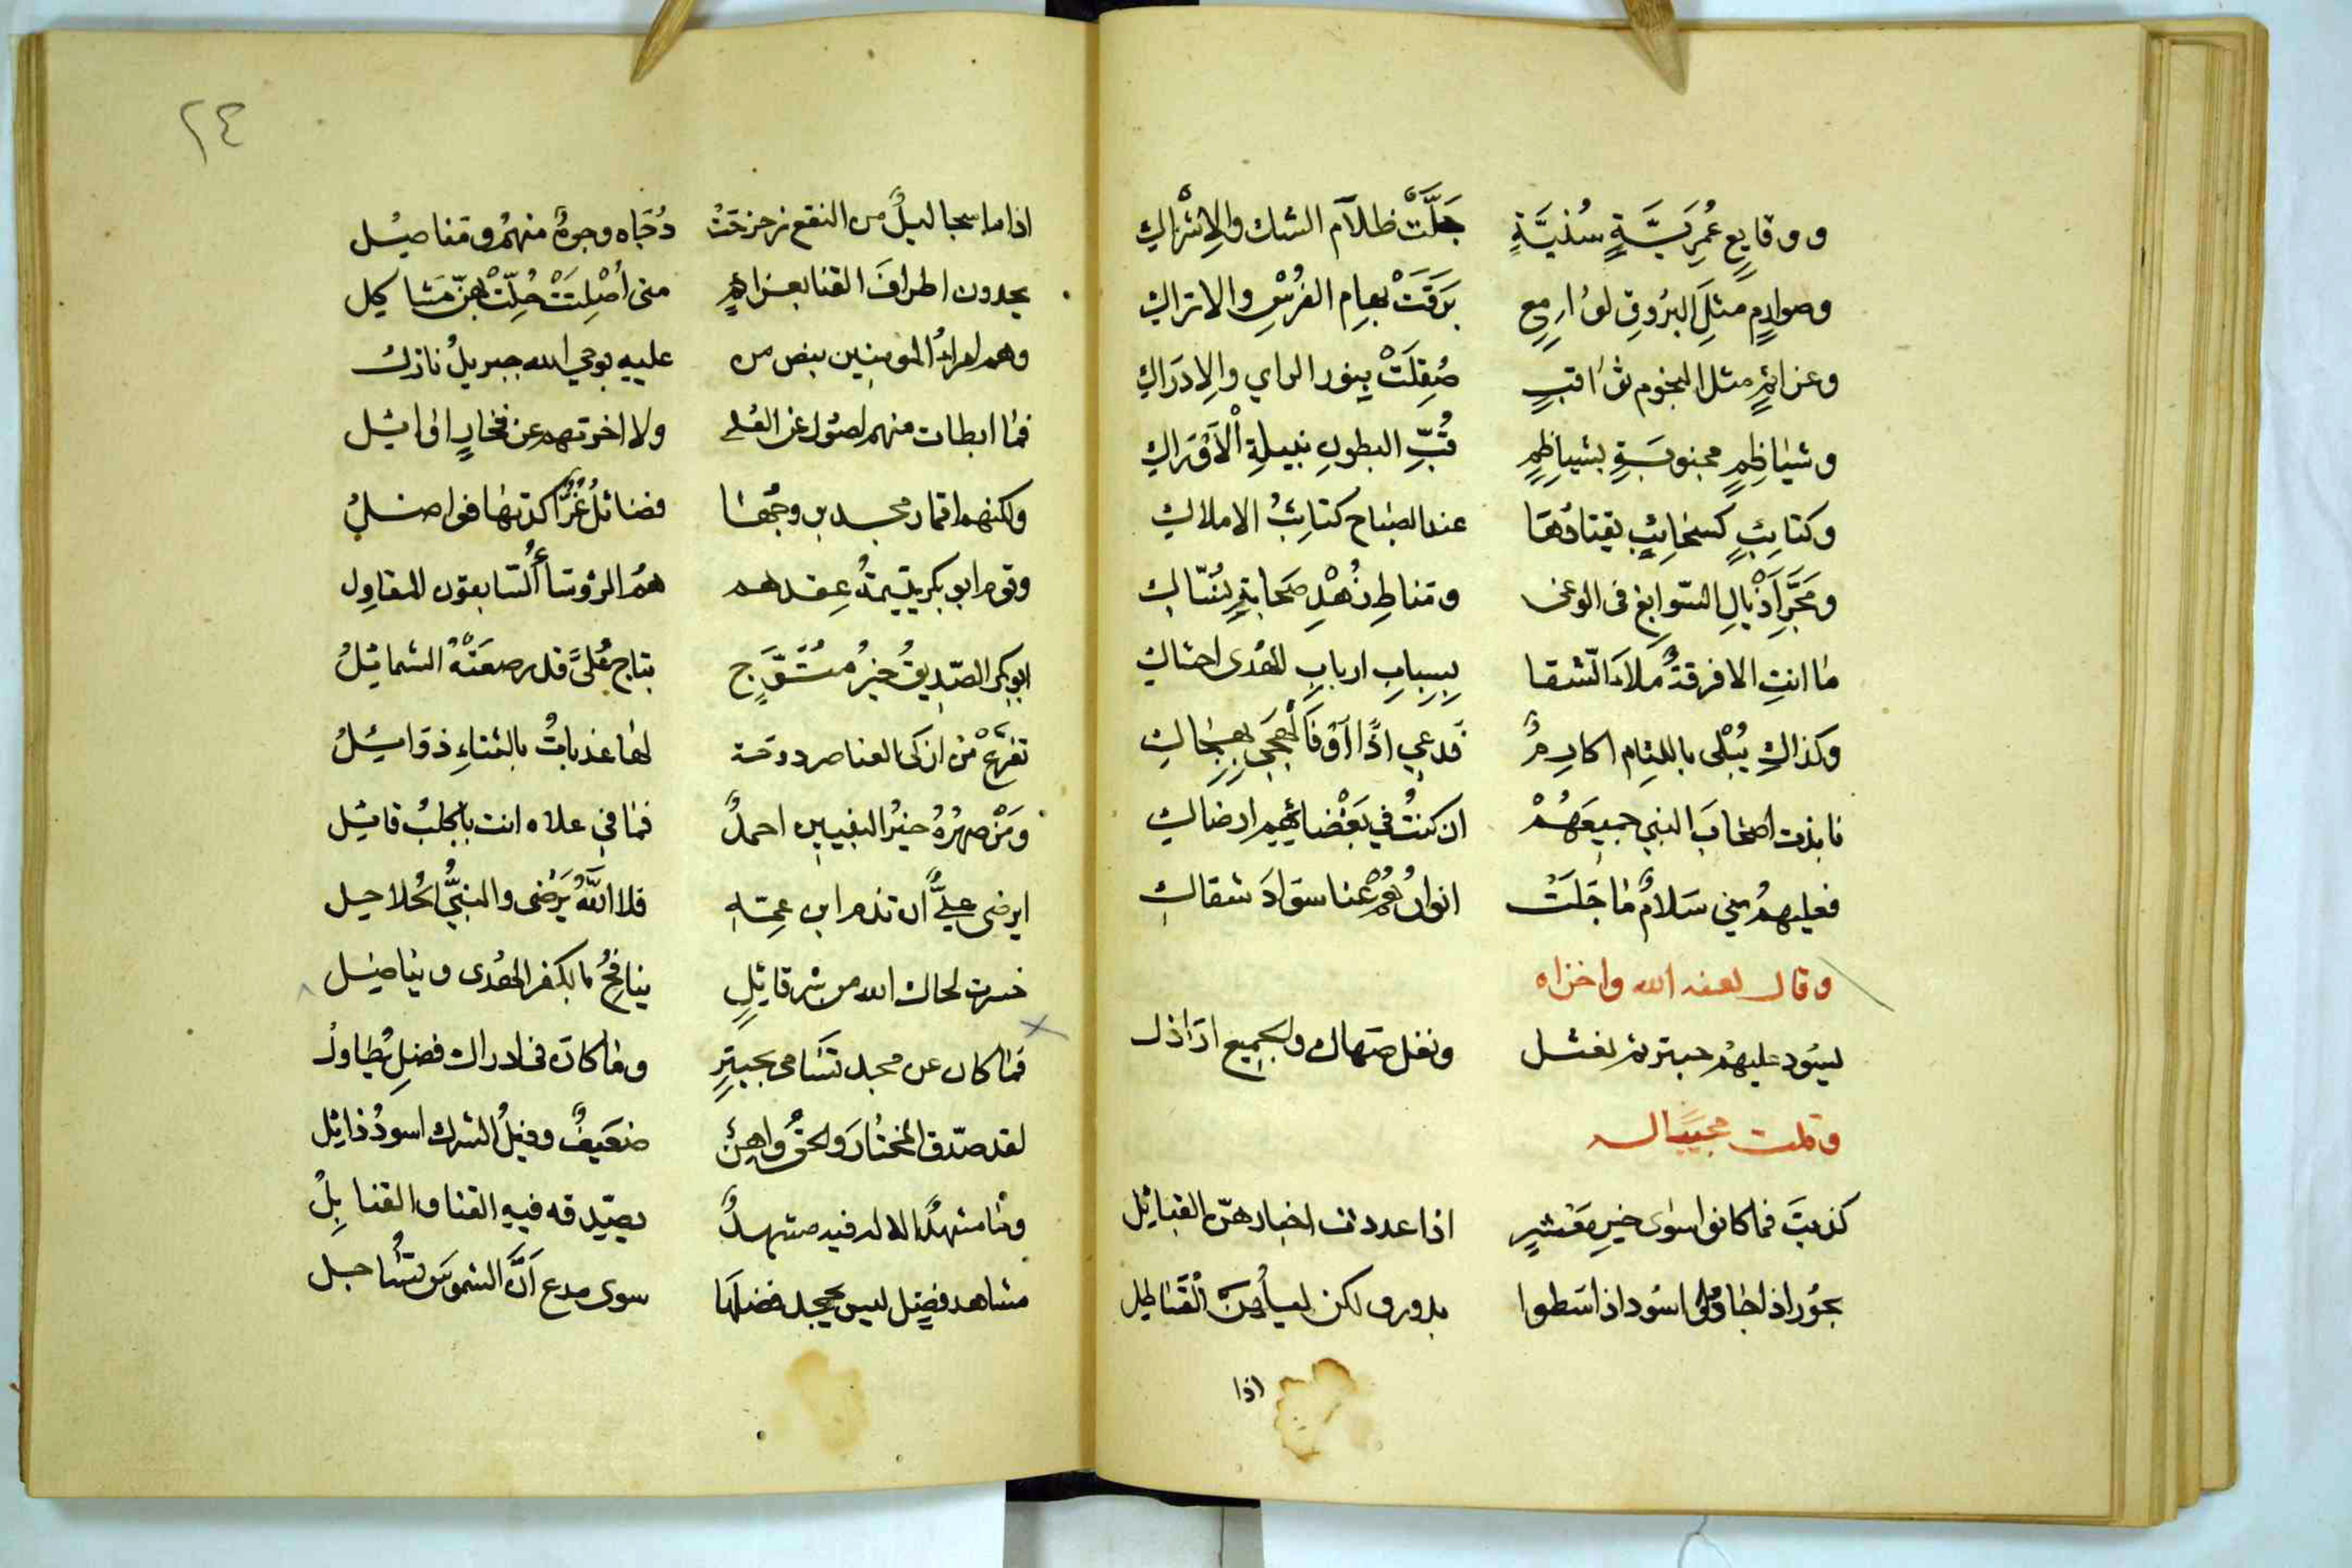 ووقايع عُمَريَّةٍ سُنيَّةٍ جَلَّتْ ظلآم الشك والاِشْراكِ
وصوارمٍ مثلَ البُروقِ لوارمع بَرَقَتْ بهامِ الفُرْسِ والاتراكِ
وعزائمٍ مثل النجوم ثواقبٍ صُقِلَتْ بنور الراي والاِدرَاكِ
وشياظمٍ مجنوبَةٍ بشياظمٍ قُبِّ البطونِ نبيلةِ الْاَوْرَاكِ
وكتائبٍ كسحائبٍ يقتادُهَا عند الصباح كتائبُ الاملاكِ
ومَجَرِّ اَذْيالِ السّوابغ في الوغى ومناطِ زُهْدِ صحابةٍ نُسّاكِ
ما انتِ الا فرقةٌ مَلاَءَ الشقا بسبابِ اربابِ الهُدى احشاكِ
وكذاكِ يُبْلى باللئام اكارمٌ فدعي اذًا
نابذت اصحَابَ النبي جميعَهُمْ ان كنتُ في بَغْضائهم ارضاكِ
فعليهمُ مني سَلامٌ ما جَلَتْ انوارُهُمْ عنا سَوادَ شقاكِ
وقال لعنه الله واخزاه
يسود عليهم حبتر ثم نعثل ونغل صهاك والجميع اراذل
وقلت مجيبًا له
كذبتَ فما كانوا سوى خيرِ مَعْشرٍ اذا عددت اخيارهنّ القبائل
بحُور اذا جادوا اسُود اذا سَطوا بدور ولكن ليسأمن القَسَاطِل
اذا
٢٤
اذا ما سجا ليلٌ من النقع زحزحَتْ دُجَاه وجوهٌ منهمُ ومناصل
يحدون اطرافَ القنا بعزائمٍ متى أصْلِتَتْ حُلّتْ بهنّ مَشاكل
وهم امراءُ المومنين بنص من عليه بوحي الله جبريلُ نازل
فما ابطات منهم اصول عن العلى ولا اخرتهم عن فخارٍ اوائل
ولكنهم اقمار مجد بن وجهها فضائلُ غُرٌّ اكدتها فواضلُ
وقوم ابو بكر يتيمةُ عِقدهم همُ الرؤسا السّابقون المقاوِل
ابو بكر الصّديقُ خيرُ مُتَوَّجٍ بتاج عُلىً قد رصعَتْهُ الشمائلُ
تفرع من ازكى العناصر دوحة لها عذباتٌ بالثناءِ ذوائلُ
ومَنْ صهرُهُ خيرُ النبيين احمدٌ فما في علاه انت باكلبُ قائل
ايرضى عليٌّ ان تذم ابن عمّه فلا اللهُ يَرْضى والنبيُّ الحُلاحل
خسرت لحاك الله من شر قائلٍ ينافحُ بالكفر الهُدى ويناضل
فما كان عن مجد تسَامى بحبترٍ وما كان في ادراك فضلٍ يُطاولُ
لقد صدّق المختارَ والحقُّ واهنٌ ضعيفٌ وفيلُ الشرك اسودُ ذائل
وثنا مشهدٌ الا له فيه مشهدٌ يصّدقه فيه القنا والقنابلُ
مشاهد فضلٍ ليس يجحد فضلَها سوى مدع أنّ الشموسَ تُشاجل